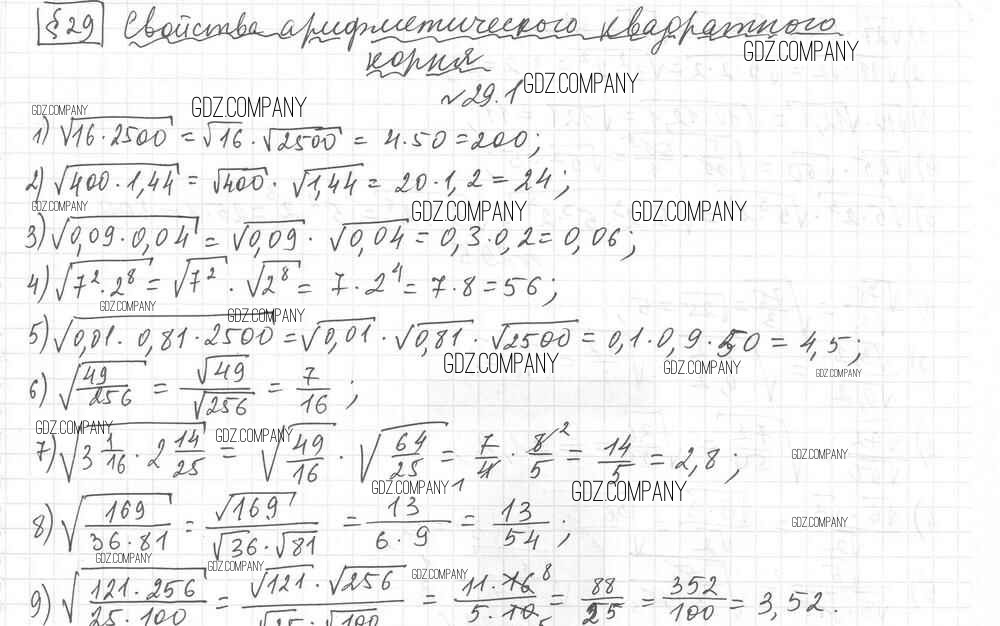 §29 Свойства арифметического квадратного
GDZ.COMPANY
корня
№29.1 GDZ.COMPANY
GDZ.COMPANY GDZ.COMPANY
1) √16·2500 = √16 · √2500 = 4·50 = 200;
2) √400·1,44 = √400 · √1,44 = 20·1,2 = 24;
GDZ.COMPANY GDZ.COMPANY GDZ.COMPANY
3) √0,09·0,04 = √0,09 · √0,04 = 0,3·0,2 = 0,06;
4) √7²·2⁸ = √7² · √2⁸ = 7·2⁴ = 7·8 = 56;
GDZ.COMPANY GDZ.COMPANY
5) √0,01·0,81·2500 = √0,01 · √0,81 · √2500 = 0,1·0,9·50 = 4,5;
GDZ.COMPANY GDZ.COMPANY GDZ.COMPANY
6) √49/256 = √49/√256 = 7/16;
GDZ.COMPANY GDZ.COMPANY GDZ.COMPANY
7) √3 1/16 · 2 14/25 = √49/16 · √64/25 = 7/4 1 · 8 2/5 = 14/5 = 2,8;
GDZ.COMPANY GDZ.COMPANY
8) √169/36·81 = √169/√36·√81 = 13/6·9 = 13/54;
GDZ.COMPANY
GDZ.COMPANY GDZ.COMPANY GDZ.COMPANY
9) √121·256/25·100 = √121·√256/√25·√100 = 11·16 8/5·10 5 = 88/25 = 352/100 = 3,52.